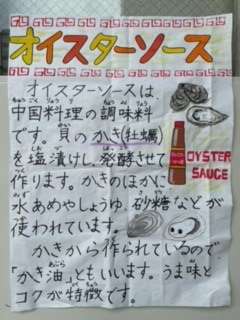 オイスターソース
オイスターソースは、
中国料理の調味料
です。貝のかき(牡蠣)
を塩漬けし、発酵させて
作ります。かきのほかに
水あめやしょうゆ、砂糖などが
使われています。
かきから作られているので、
「かき油」ともいいます。うま味と
コクが特徴です。
OYSTER
SAUCE